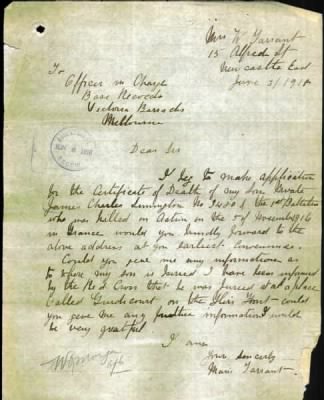 Mrs W Tarrant
15 Alfred St
Newcastle East
June 3/1918
To
Officer in Charge
Base Records
Victoria Barracks
Melbourne
Dear Sir
I beg to make application
for the Certificate of Death of my son Private
James Charles No 3400 of the 1st Battalion
who was killed in Action on the 5 of November 1916
in France would you kindly forward to the
above address at you earliest
Could you give me any informations as
to where my son is buried I have been informed
by the Red Cross that he was buried at a place
called Guedecourt on the Front could
you give me any further information I would
be very greatful
I am
your sincerely
Marie Tarrant